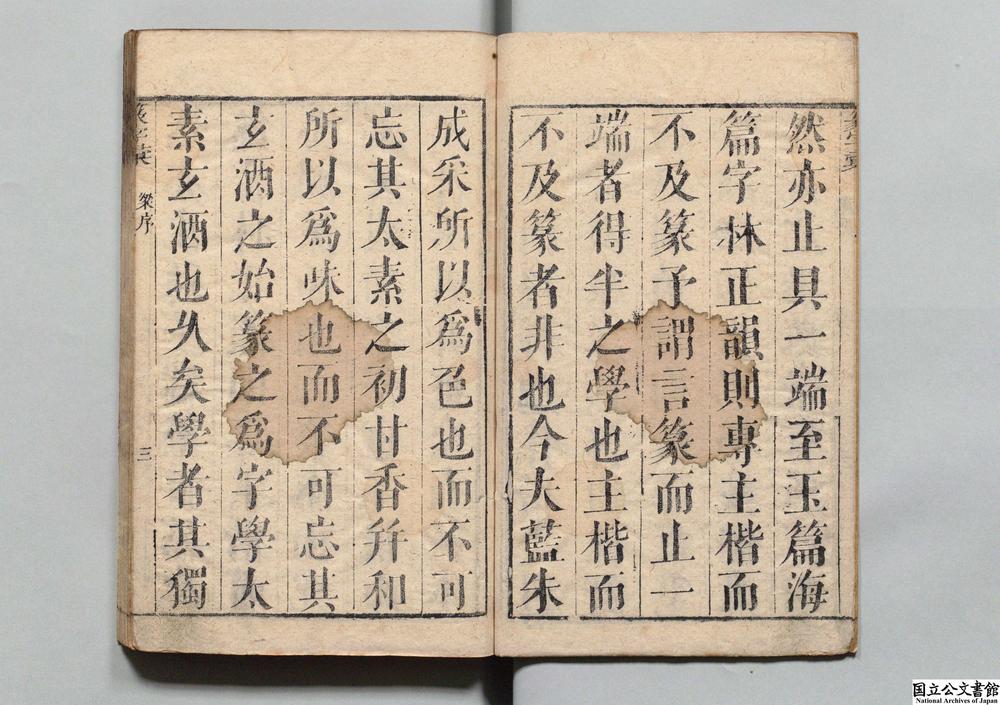 然亦止具一端至玉篇海
篇字林正韻則專主楷而
不及篆予謂言篆而止一
端者得半之學也主楷而
不及篆者非也今夫藍朱
成采所以爲色也而不可
忘其太素之初甘香幷和
所以爲味也而不可忘其
玄酒之始篆之爲字學太
素玄酒也久矣學者其獨
彙 序
三
国立公文書館
National Archives of Japan